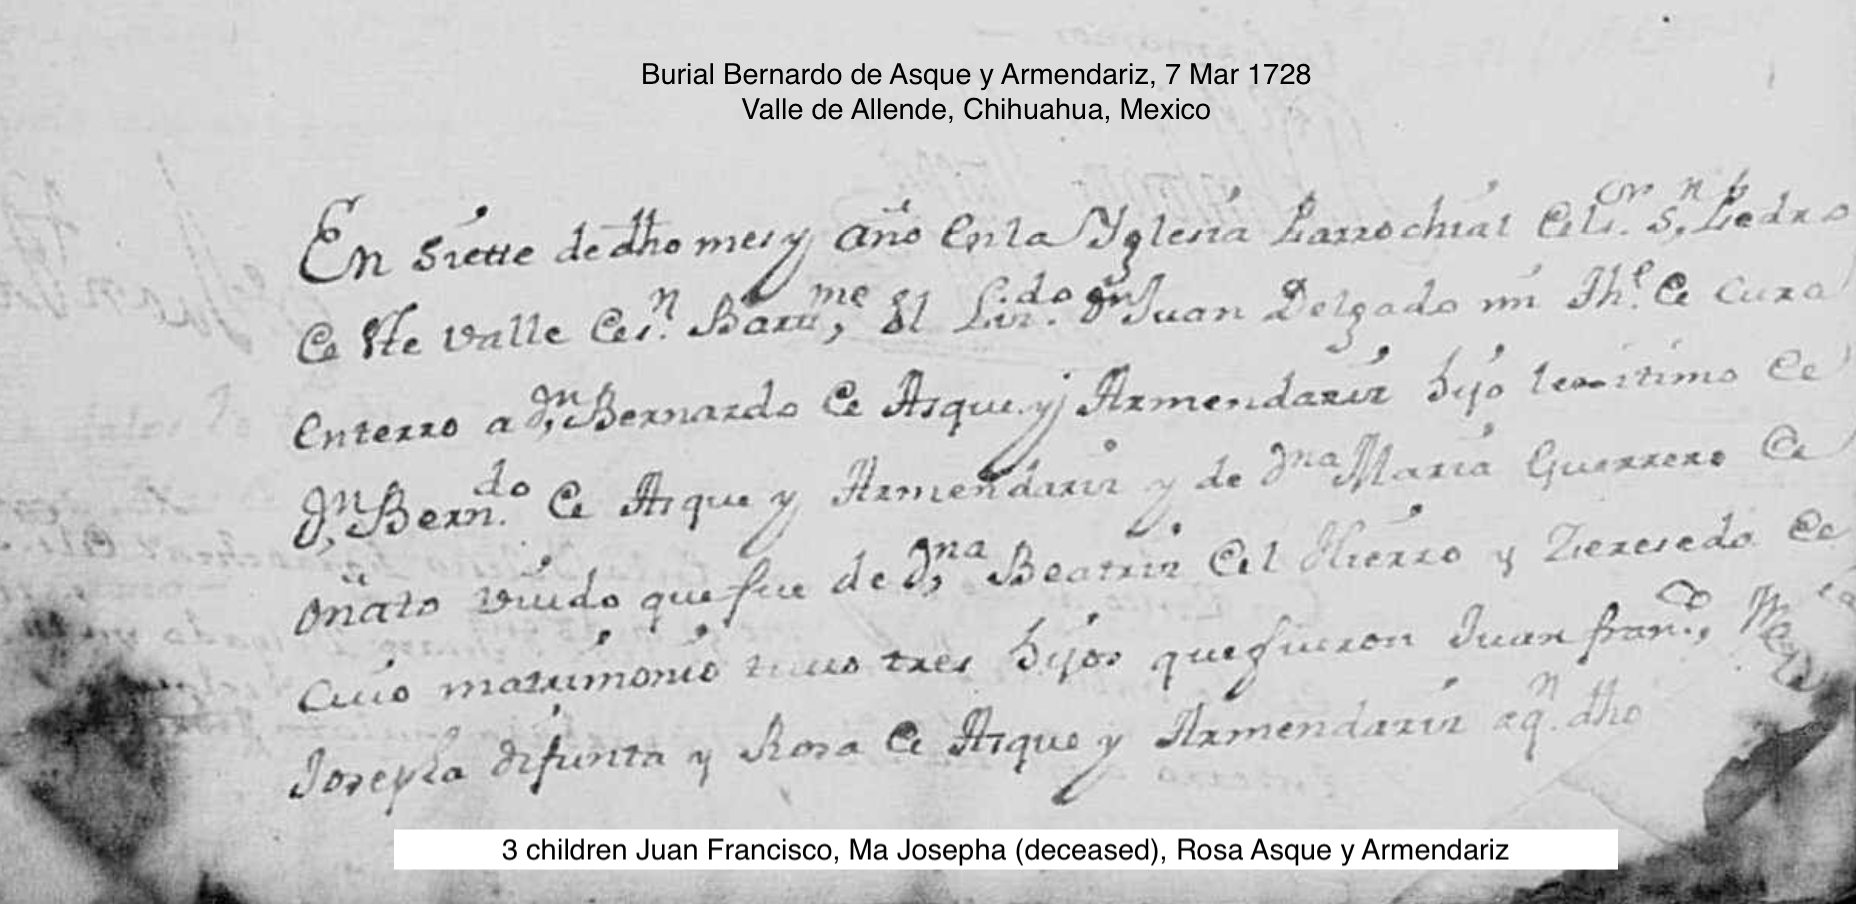 Burial Bernardo de Asque y Armendariz, 7 Mar 1728
Valle de Allende, Chihuahua, Mexico
En siette de dho mes y año en la Yglesia Parrochial del Sr. Sn. Pedro
de este valle de Sn. Barme, el Lizdo. Dn Juan Delgado mi Thte. de cura
enterro a Dn, Bernardo de Asque y Armendariz hijo lexitimo de
Dn, Berndo. de Asque y Armendariz y de Dna Maria Guerrero de
oñato viudo que fue de Dna, Beatriz del Hierro y Zeresedo de
cuio matrimonio tuuo tres hijos que fueron Juan Franco.,
Josepha difunta y Rosa de Asque y Armendariz aqn. dho
3 children Juan Francisco, Ma Josepha (deceased), Rosa Asque y Armendariz